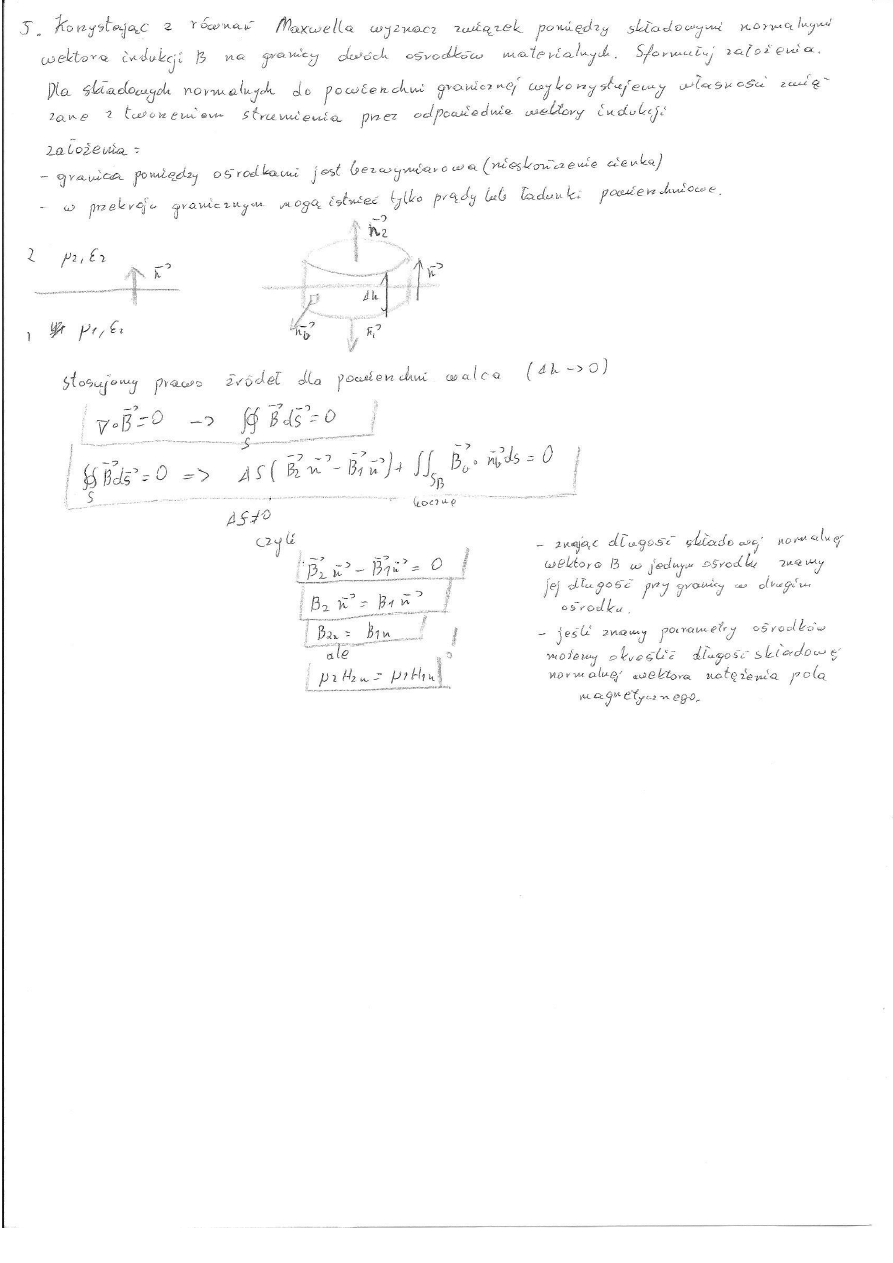 5. Korzystając z równań Maxwella wyznacz związek pomiędzy składowymi normalnymi
wektora indukcji B na granicy dwóch ośrodków materialnych. Sformułuj założenia.
Dla składowych normalnych do powierzchni granicznej wykorzystujemy własności zwią-
zane z tworzeniem strumienia przez odpowiednie wektory indukcji
założenia:
- granica pomiędzy ośrodkami jest bezwymiarowa (nieskończenie cienka)
- w przekroju granicznym mogą istnieć tylko prądy lub ładunki powierzchniowe.
2 μ₂, ε₂
n⃗
n⃗₂
Δh
n⃗
n⃗b
n⃗₁
1 μ₁, ε₂
stosujemy prawo źródeł dla powierzchni walca (Δh → 0)
∇∘B⃗ = 0 → ∯ B⃗ ds⃗ = 0
S
∯ B⃗ds⃗ = 0 => ΔS(B⃗₂ n⃗ - B⃗₁ n⃗) + ∬ B⃗b ∘ n⃗b ds = 0
S
S_B
boczne
ΔS≠0
czyli
B⃗₂ n⃗ - B⃗₁ n⃗ = 0
B₂ n⃗ = B₁ n⃗
B₂ₙ = B₁ₙ
ale
μ₂ H₂ₙ = μ₁ H₁ₙ
- znając długość składowej normalnej
wektora B w jednym ośrodku znamy
jej długość przy granicy w drugim
ośrodku.
- jeśli znamy parametry ośrodków
możemy określić długość składowej
normalnej wektora natężenia pola
magnetycznego.